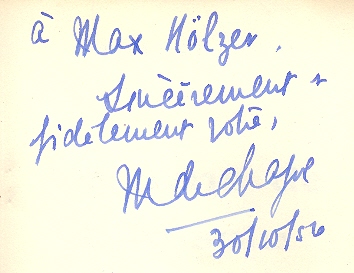 à Max Hölzer,
Sincèrement +
fidèlement votre,
M de Chazal
30/10/56